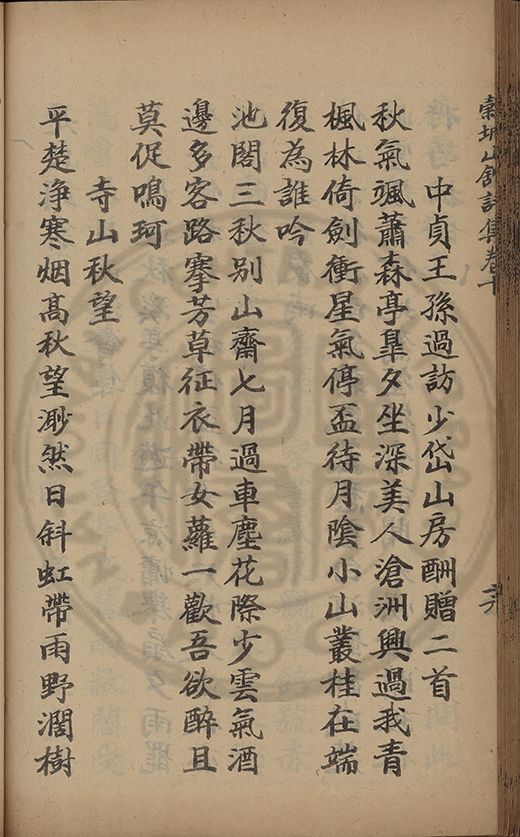 中貞王孫過訪少岱山房酬贈二首
秋氣颯蕭森亭臯夕坐深美人滄洲興過我青
楓林倚劍衝星氣停盃待月陰小山叢桂在端
復為誰吟
池閤三秋别山齋七月過車塵花際少雲氣酒
邊多客路搴芳草征衣帶女蘿一歡吾欲醉且
莫促鳴珂
寺山秋望
平楚浄寒烟高秋望渺然日斜虹帶雨野濶樹